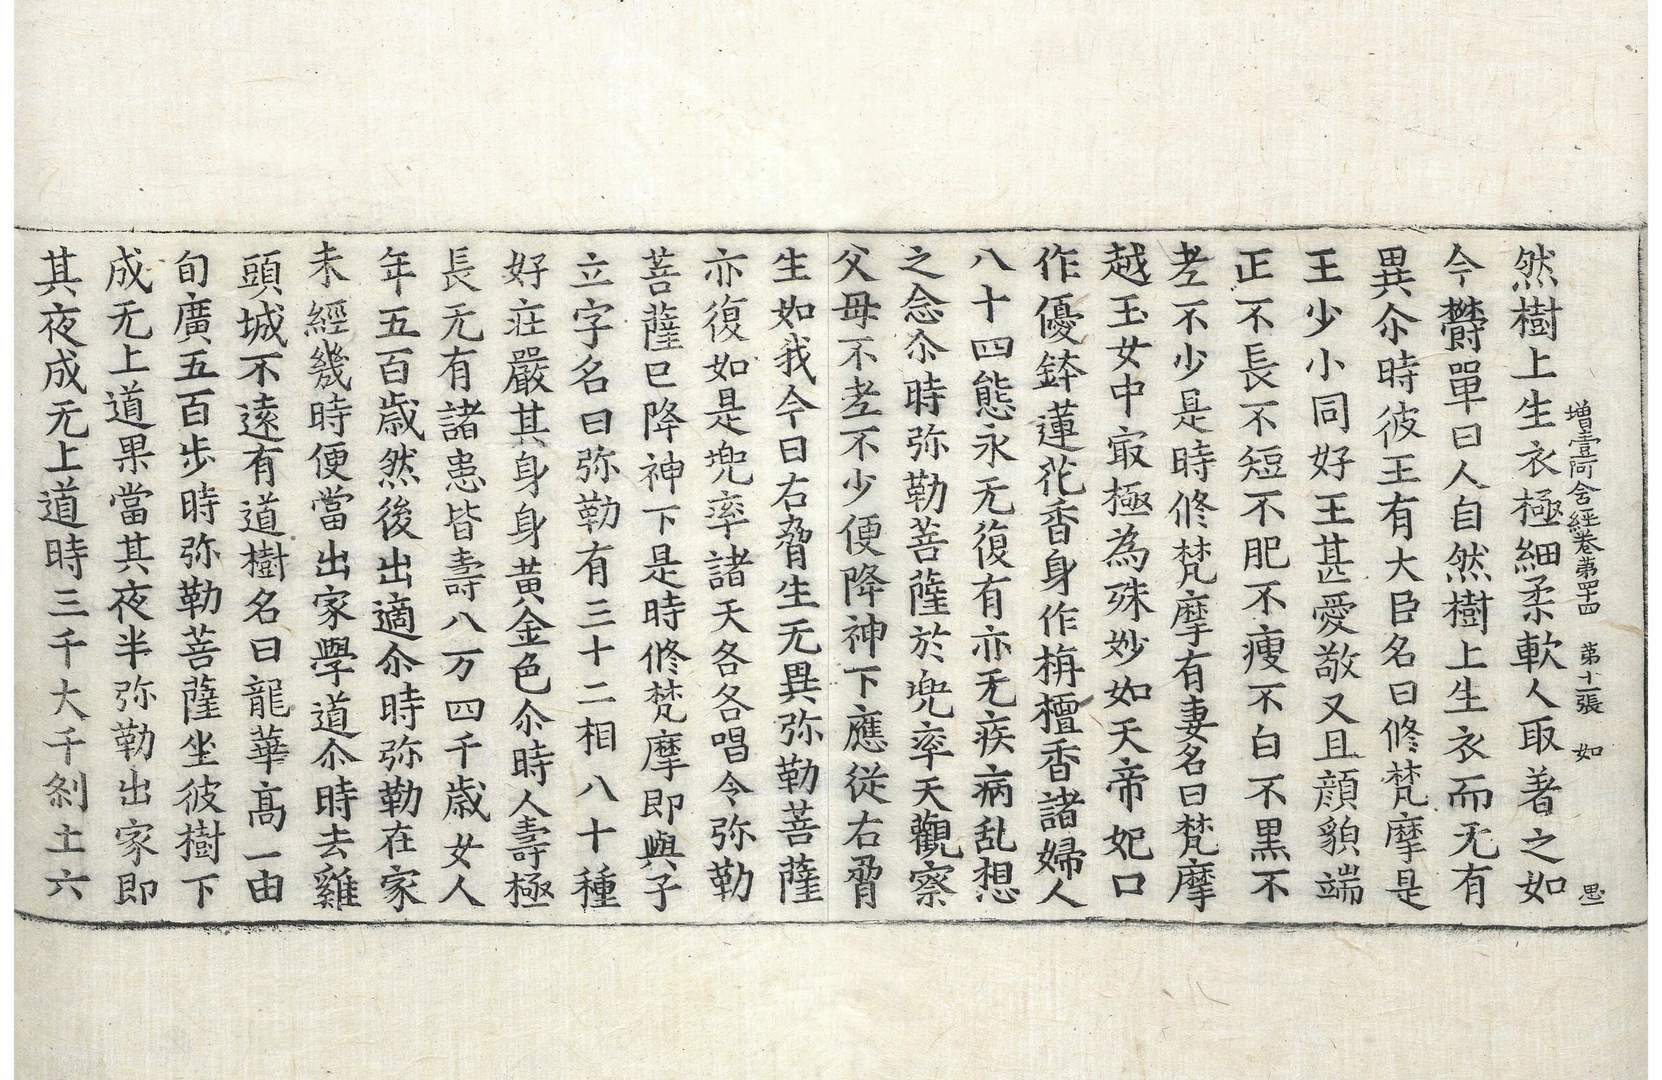 增壹阿含經卷第四十四　第十二張　如　思
然樹上生衣極細柔軟人取著之如
今欝單曰人自然樹上生衣而无有
異尒時彼王有大臣名曰修梵摩是
王少小同好王甚愛敬又且顔貌端
正不長不短不肥不瘦不白不黑不
老不少是時修梵摩有妻名曰梵摩
越玉女中㝡極為殊妙如天帝妃口
作優鉢蓮花香身作栴檀香諸婦人
八十四態永无復有亦无疾病乱想
之念尒時弥勒菩薩於兜率天觀察
父母不老不少便降神下應從右脅
生如我今日右脅生无異弥勒菩薩
亦復如是兜率諸天各各唱令弥勒
菩薩已降神下是時修梵摩即與子
立字名曰弥勒有三十二相八十種
好莊嚴其身身黄金色尒時人壽極
長无有諸患皆壽八万四千歲女人
年五百歲然後出適尒時弥勒在家
未經幾時便當出家學道尒時去雞
頭城不遠有道樹名曰龍華髙一由
旬廣五百步時弥勒菩薩坐彼樹下
成无上道果當其夜半弥勒出家即
其夜成无上道時三千大千剎土六